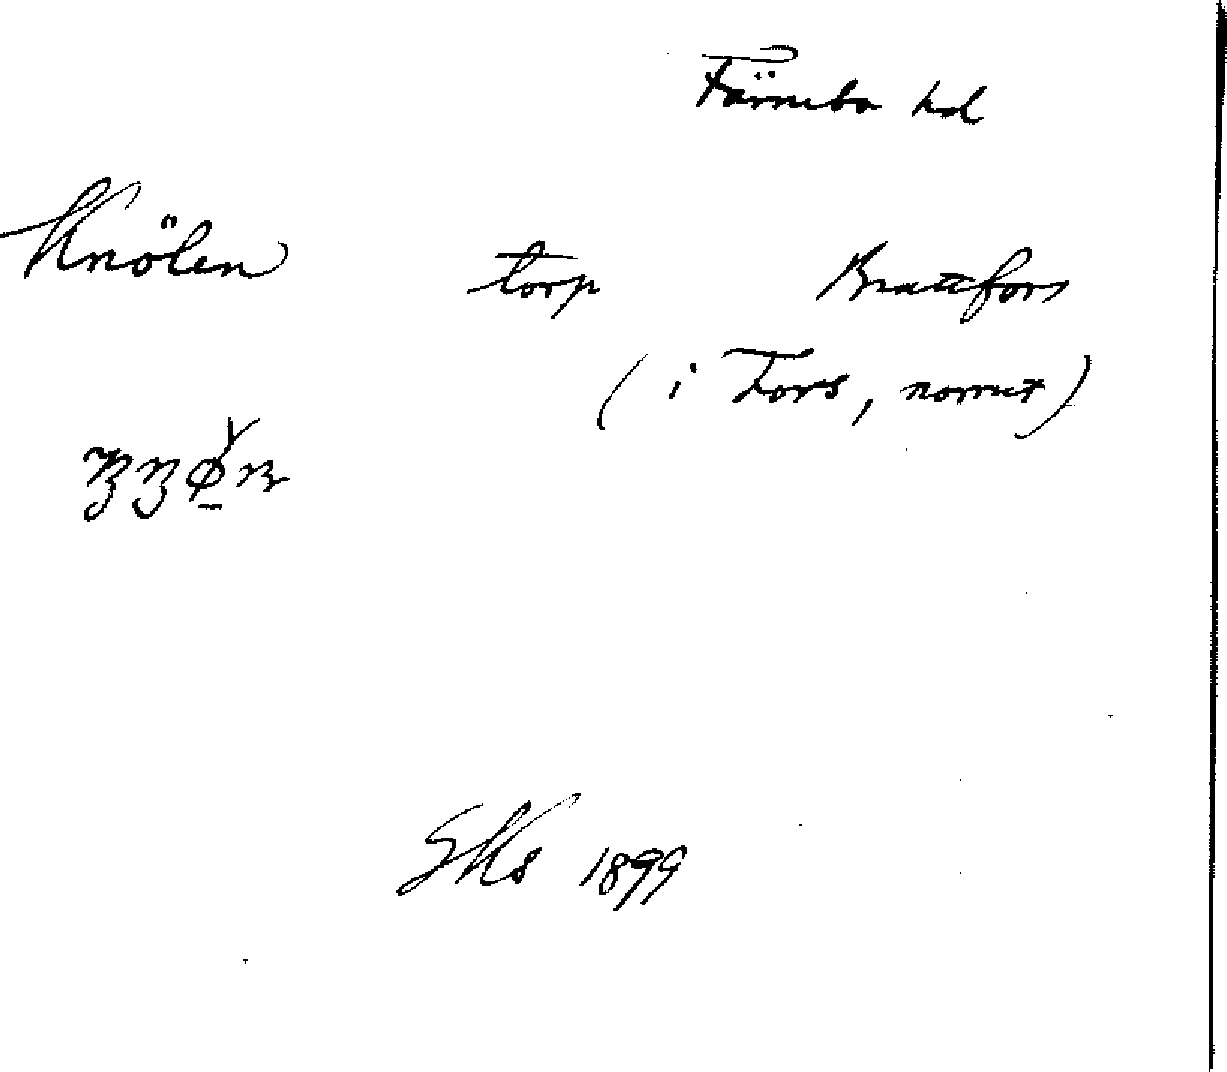 Färnebo hd
Knölen torp Brattfors
(i Fors, norrut)
SKs 1899